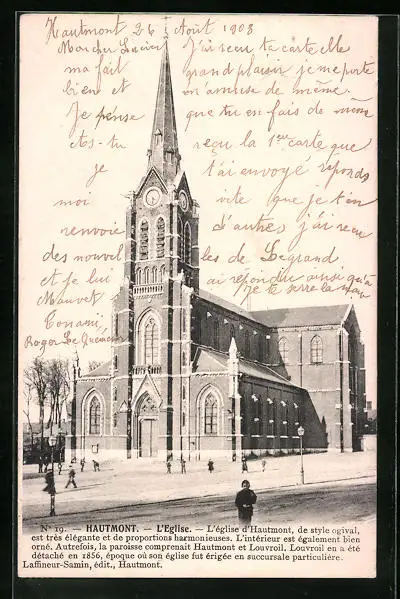 Hautmont 26 Août 1903
Mon cher Lucien J'ai reçu ta carte elle
ma fait grand plaisir je me porte
bien et m'amuse de même.
Je pense que tu en fais de mêm
As-tu reçu la 1ère carte que
je t'ai envoyé réponds
moi vite que je t'en
renvoie d'autres j'ai reçu
des nouvel les de Legrand
et je lui ai répondu ainsi qu'a
Mauvet je te serre la main
Ton ami
Roger Le
No 19. – HAUTMONT. – L'Eglise. – L'église d'Hautmont, de style ogival,
est très élégante et de proportions harmonieuses. L'intérieur est également bien
orné. Autrefois, la paroisse comprenait Hautmont et Louvroil. Louvroil en a été
détaché en 1856, époque où son église fut érigée en succursale particulière.
Laffineur-Samin, édit., Hautmont.